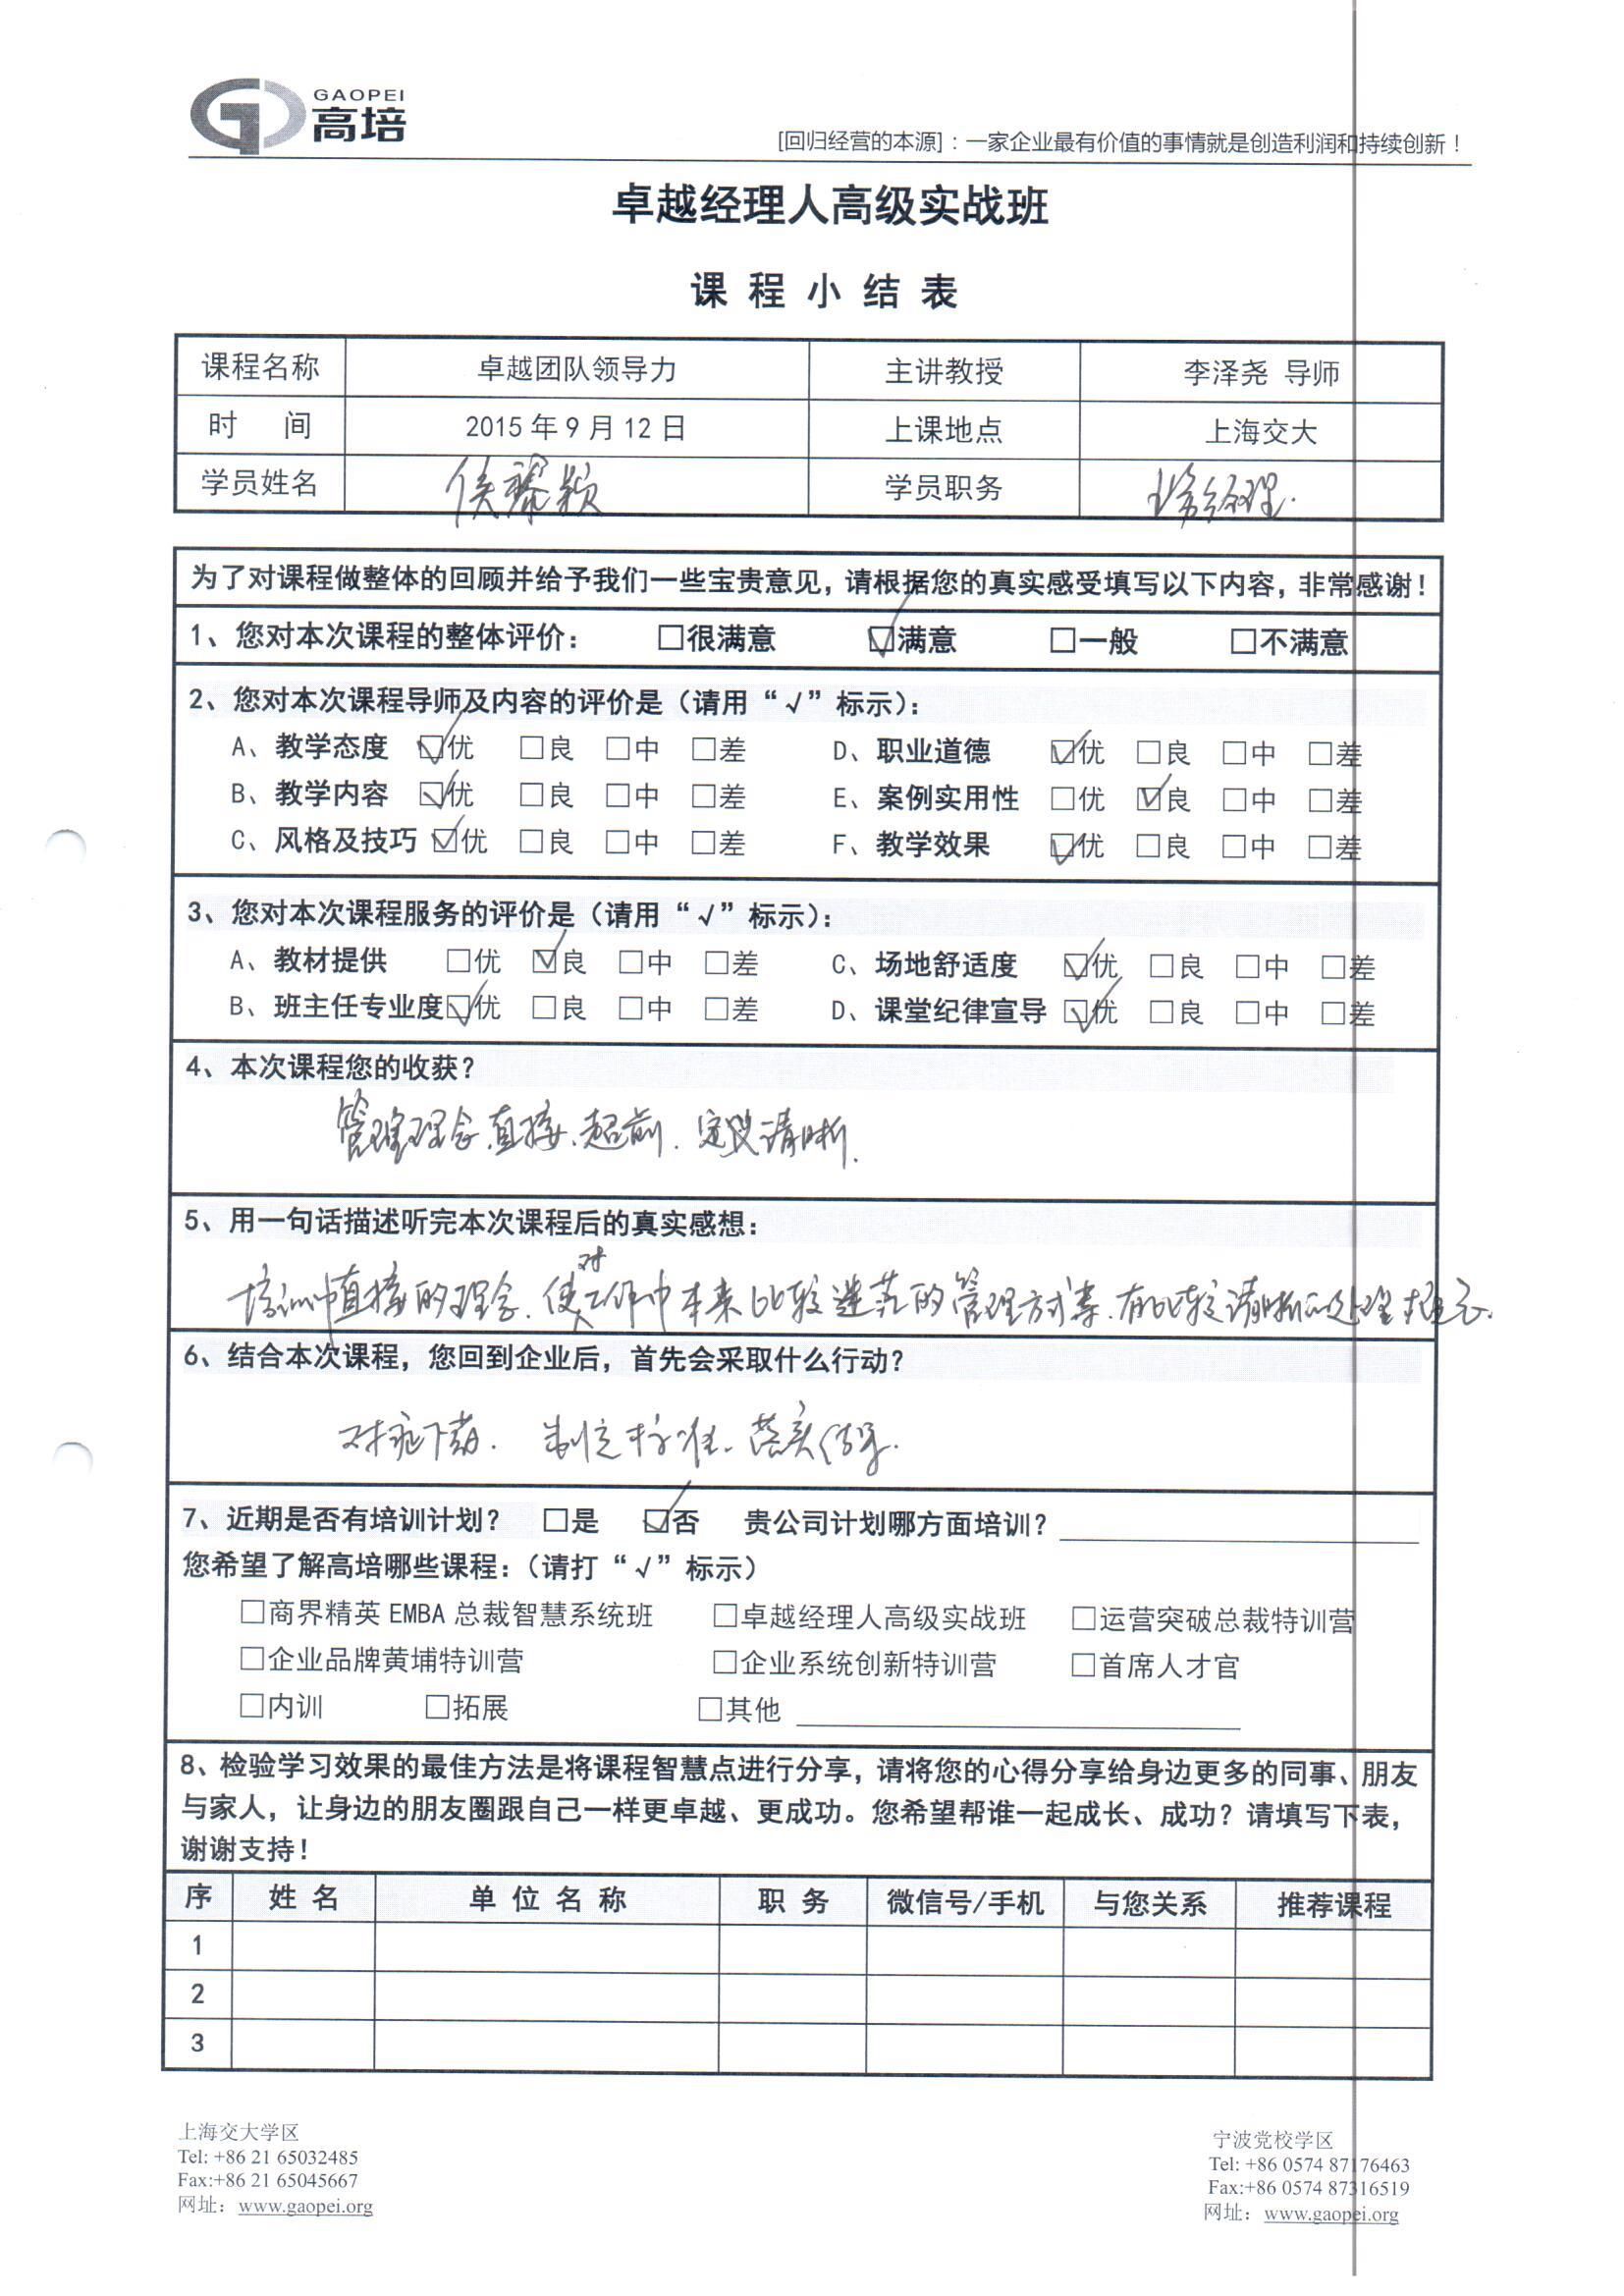 GAOPEI
高培
[回归经营的本源]：一家企业最有价值的事情就是创造利润和持续创新！
卓越经理人高级实战班
课 程 小 结 表
课程名称 卓越团队领导力 主讲教授 李泽尧 导师
时 间 2015 年 9 月 12 日 上课地点 上海交大
学员姓名 侯 颖 学员职务 经理.
为了对课程做整体的回顾并给予我们一些宝贵意见，请根据您的真实感受填写以下内容，非常感谢！
1、您对本次课程的整体评价： □很满意 ☑满意 □一般 □不满意
2、您对本次课程导师及内容的评价是（请用“√”标示）：
A、教学态度 ☑优 □良 □中 □差 D、职业道德 ☑优 □良 □中 □差
B、教学内容 ☑优 □良 □中 □差 E、案例实用性 □优 ☑良 □中 □差
C、风格及技巧 ☑优 □良 □中 □差 F、教学效果 ☑优 □良 □中 □差
3、您对本次课程服务的评价是（请用“√”标示）：
A、教材提供 □优 ☑良 □中 □差 C、场地舒适度 ☑优 □良 □中 □差
B、班主任专业度 ☑优 □良 □中 □差 D、课堂纪律宣导 ☑优 □良 □中 □差
4、本次课程您的收获？
管理理念直接、超前. 定义清晰.
5、用一句话描述听完本次课程后的真实感想：
培训中直接的理念. 使对工作中本来比较迷茫的管理方案. 有比较清晰的处理
6、结合本次课程，您回到企业后，首先会采取什么行动？
对症下药. 制定标准. 落实
7、近期是否有培训计划？ □是 ☑否 贵公司计划哪方面培训？
您希望了解高培哪些课程：（请打“√”标示）
□商界精英 EMBA 总裁智慧系统班 □卓越经理人高级实战班 □运营突破总裁特训营
□企业品牌黄埔特训营 □企业系统创新特训营 □首席人才官
□内训 □拓展 □其他
8、检验学习效果的最佳方法是将课程智慧点进行分享，请将您的心得分享给身边更多的同事、朋友
与家人，让身边的朋友圈跟自己一样更卓越、更成功。您希望帮谁一起成长、成功？请填写下表，
谢谢支持！
序 姓 名 单 位 名 称 职 务 微信号/手机 与您关系 推荐课程
1
2
3
上海交大学区
Tel: +86 21 65032485
Fax:+86 21 65045667
网址：www.gaopei.org
宁波党校学区
Tel: +86 0574 87176463
Fax:+86 0574 87316519
网址：www.gaopei.org